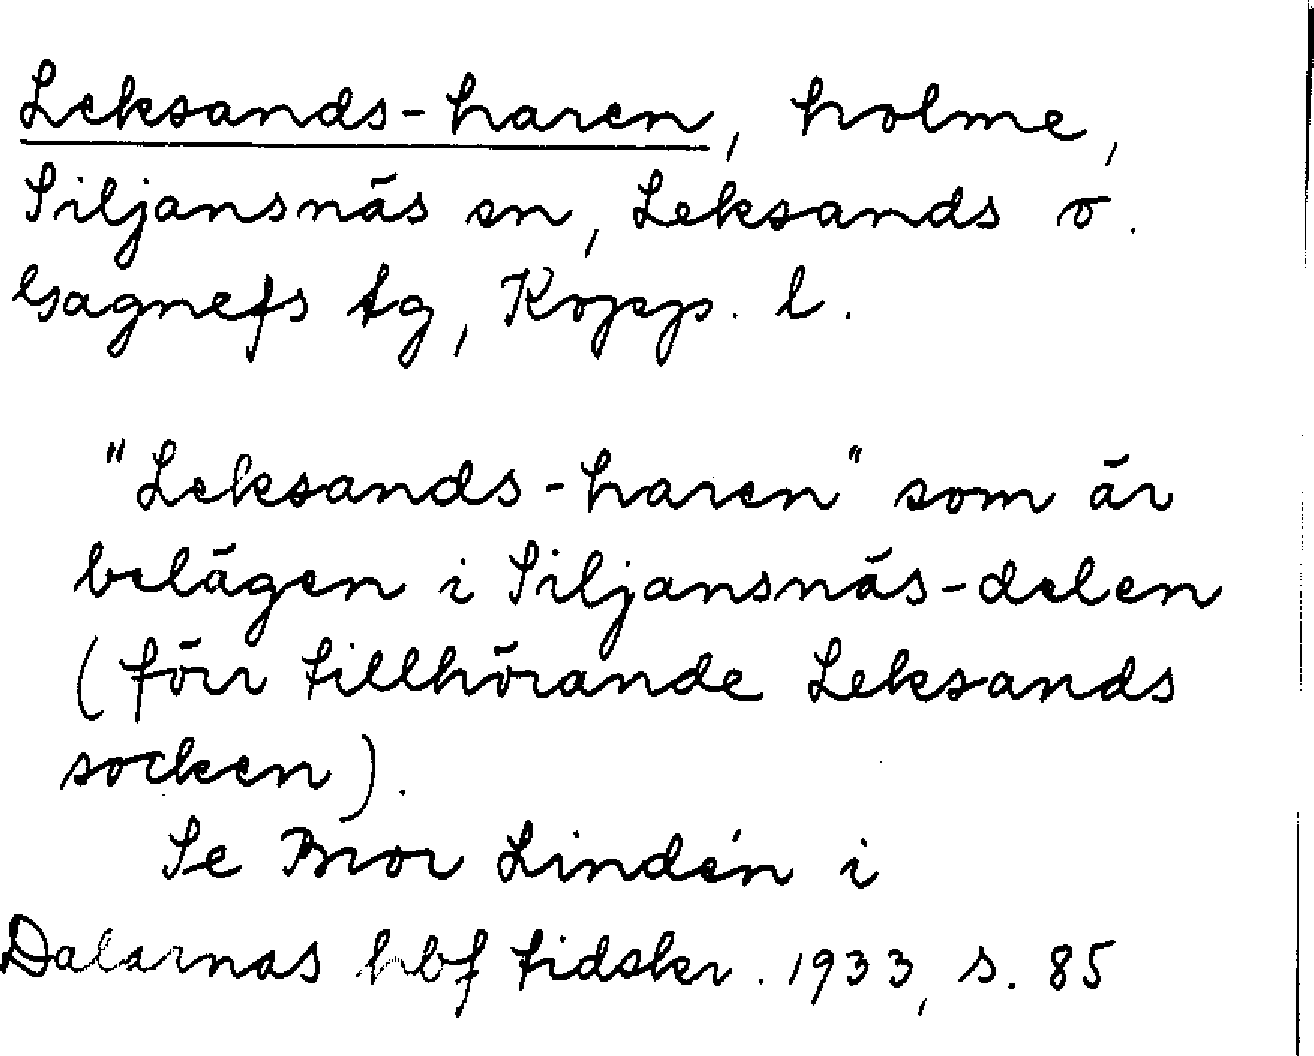 Leksands-haren, holme,
Siljansnäs sn, Leksands o.
Gagnefs tg, Kopp. l.
"Leksands-haren" som är
belägen i Siljansnäs-delen
(förr tillhörande Leksands
socken).
Se Bror Lindén i
Dalarnas hbf tidskr. 1933, s. 85